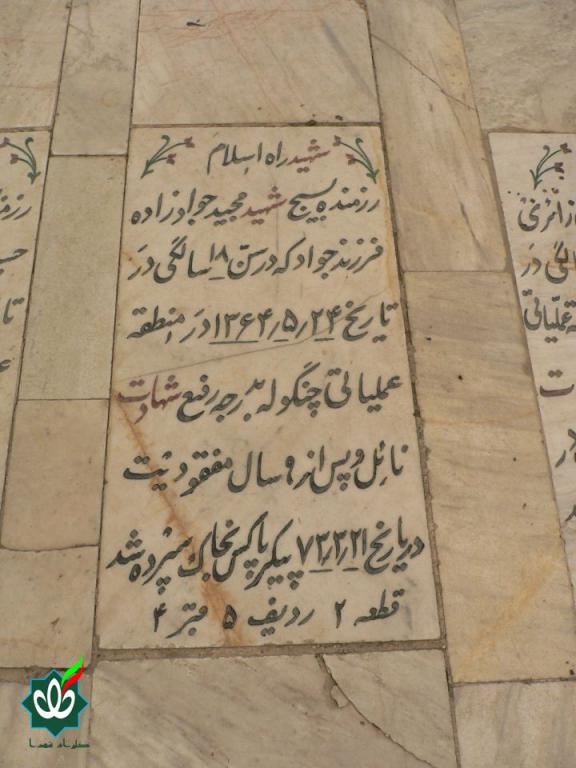 شهید راه اسلام
رزمنده بسیج شهید مجید جوادزاده
فرزند جواد که در سن ۱۸ سالگی در
تاریخ ۱۳۶۴٫۵٫۲۴ در منطقه
عملیاتی چنگوله بدرجه رفیع شهادت
نائل و پس از ۹ سال مفقودیت
در تاریخ ۷۳٫۳٫۲۱ پیکر پاکش بخاک سپرده شد
قطعه ۲ ردیف ۵ قبر ۴